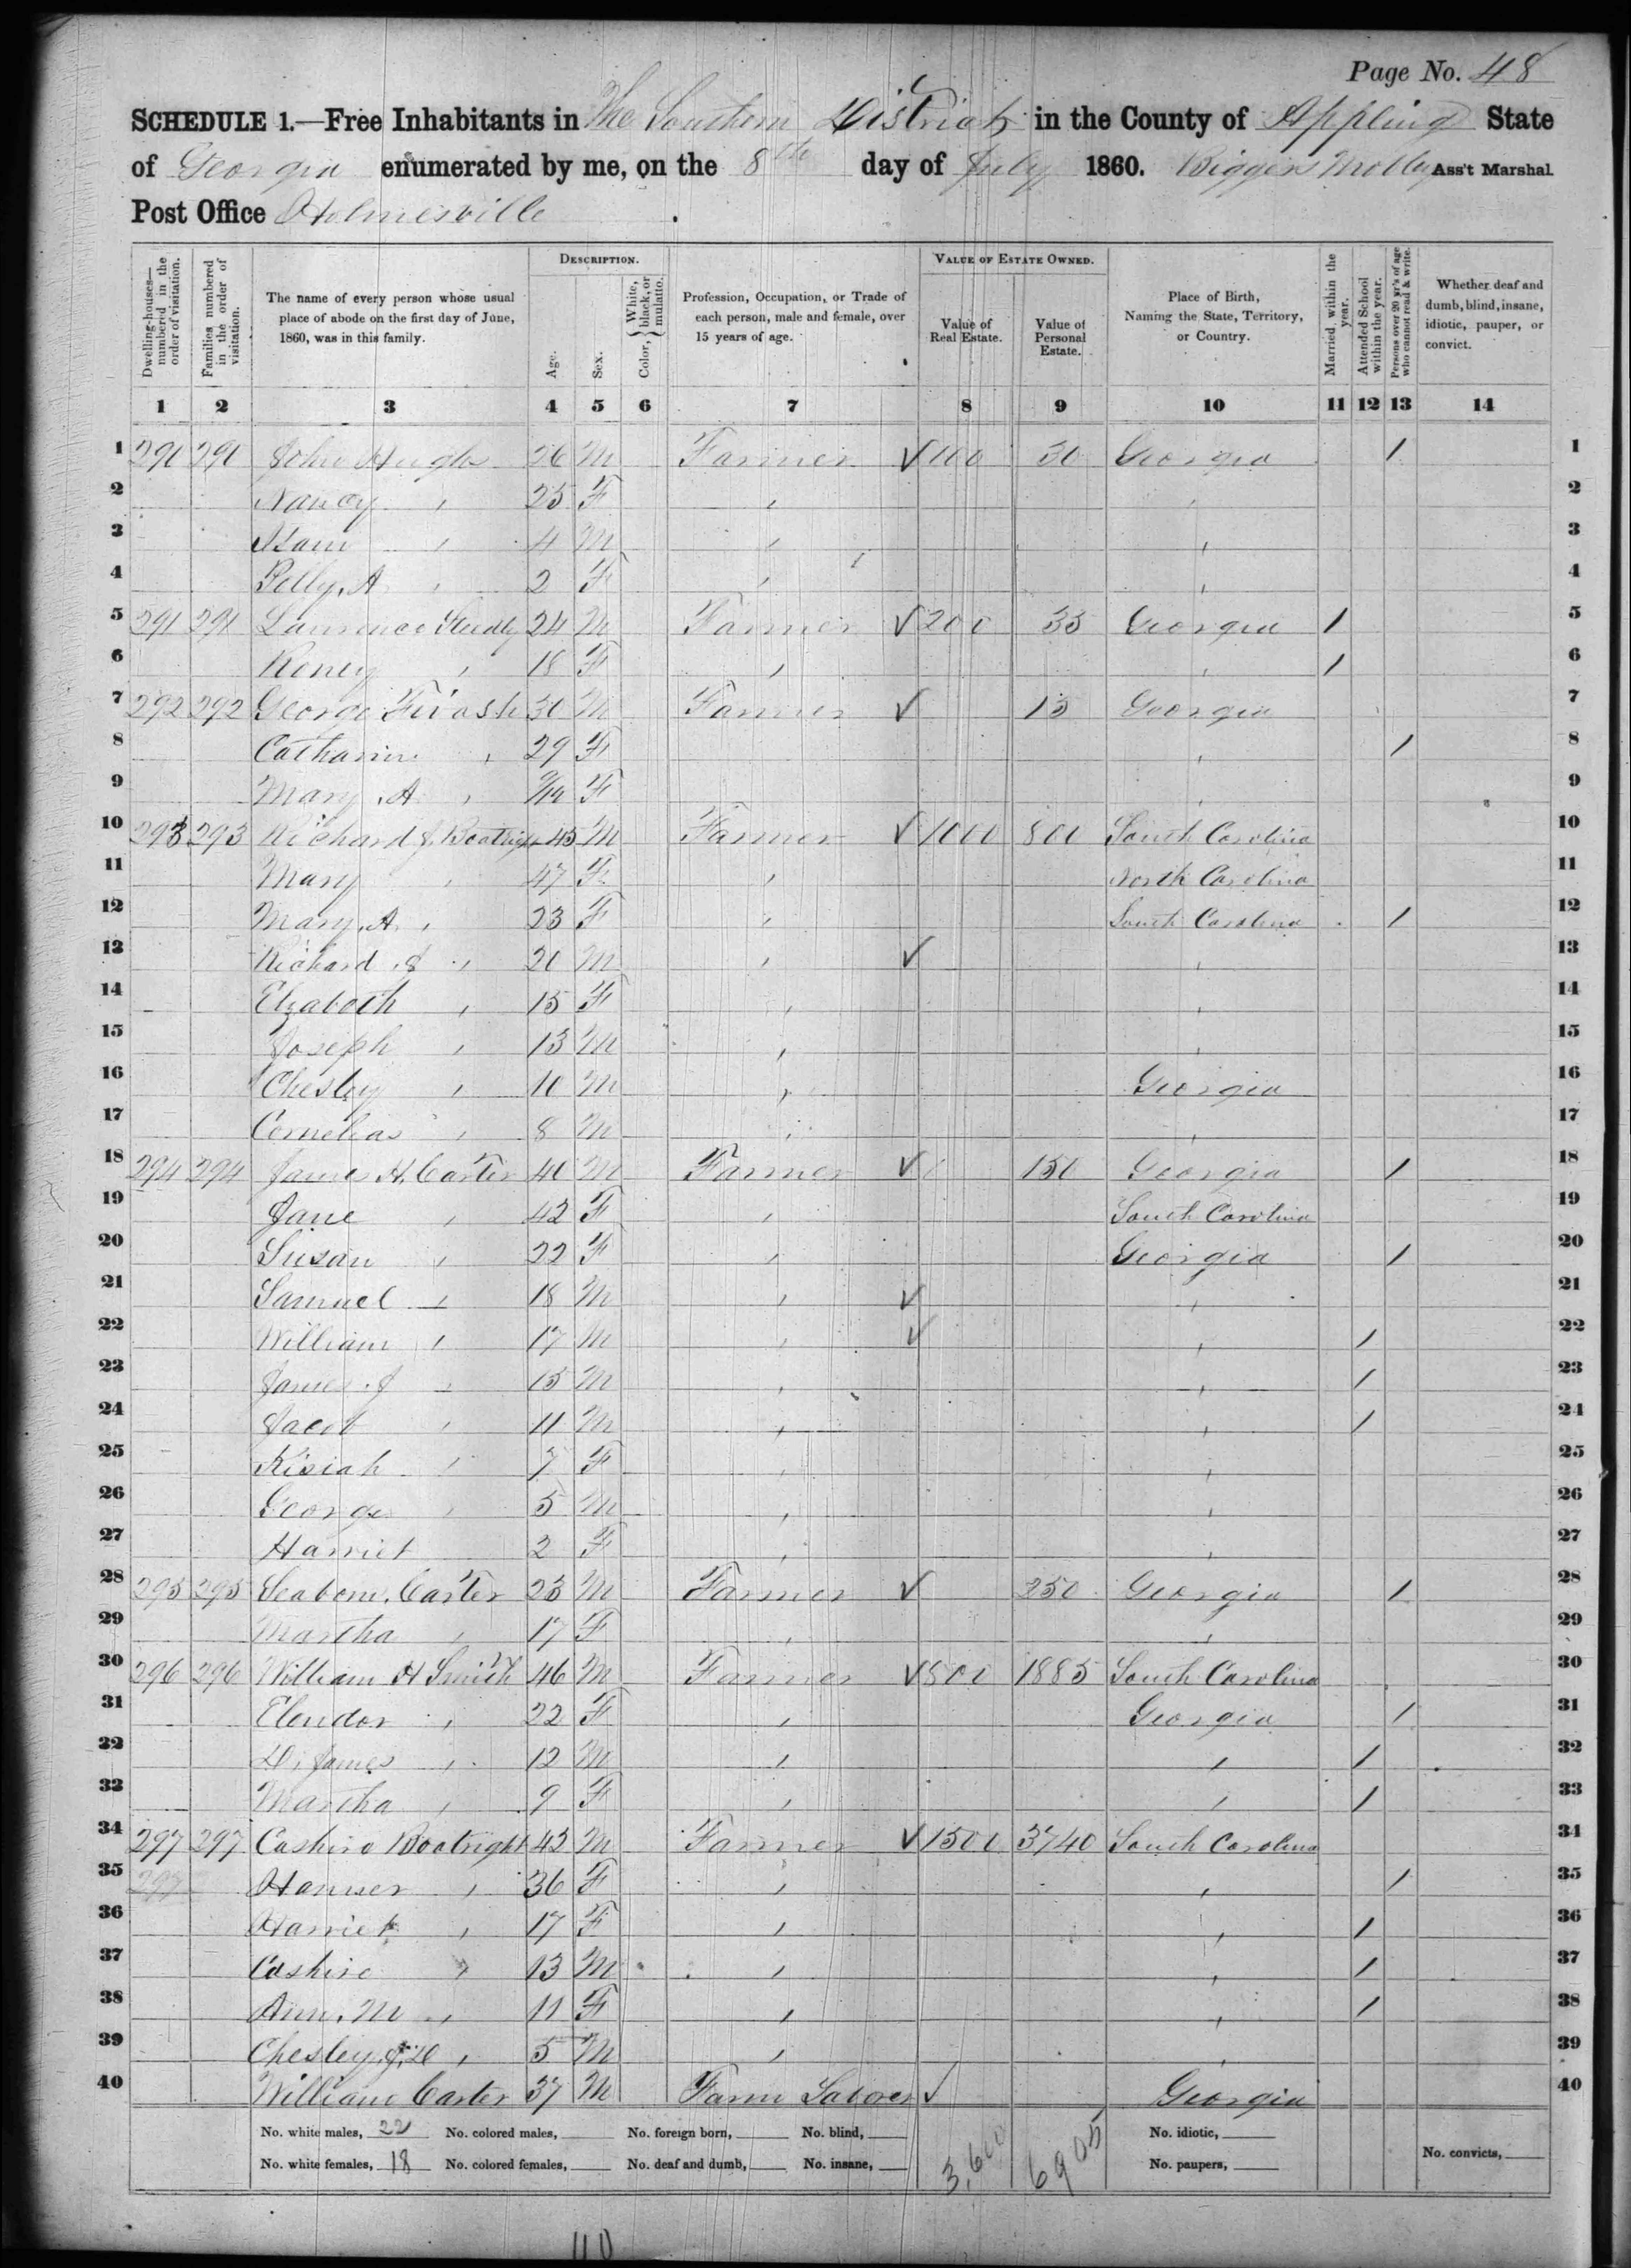 Page No. 48
SCHEDULE 1.—Free Inhabitants in The Southern District in the County of Appling State
of Georgia enumerated by me, on the 8th day of July 1860. Ass't Marshal.
Post Office Holmesville
DESCRIPTION. VALUE OF ESTATE OWNED.
Dwelling-houses—numbered in the order of visitation. Families numbered in the order of visitation. The name of every person whose usual place of abode on the first day of June, 1860, was in this family. Age. Sex. Color, { White, black, or mulatto. Profession, Occupation, or Trade of each person, male and female, over 15 years of age. Value of Real Estate. Value of Personal Estate. Place of Birth, Naming the State, Territory, or Country. Married within the year. Attended School within the year. Persons over 20 yr's of age who cannot read & write. Whether deaf and dumb, blind, insane, idiotic, pauper, or convict.
1 2 3 4 5 6 7 8 9 10 11 12 13 14
1 290 290 John Hughs 26 M Farmer ✓ 100 30 Georgia / 1
2 Nancy " 25 F " " 2
3 " 4 M " " 3
4 A " 2 F " " 4
5 291 291 Laurence 24 M Farmer ✓ 200 35 Georgia / 5
6 " 18 F " " / 6
7 292 292 George 30 M Farmer ✓ 15 Georgia 7
8 Catharin " 29 F " / 8
9 Mary A " F " 9
10 293 293 Richard J. Boatright 45 M Farmer ✓ 1000 800 South Carolina 10
11 Mary " 47 F " North Carolina 11
12 Mary, A. " 23 F " South Carolina / 12
13 Richard J " 20 M " ✓ " 13
14 Elizabeth " 15 F " " 14
15 Joseph " 13 M " " 15
16 Chesley " 10 M " Georgia 16
17 Cornelias " 8 M " " 17
18 294 294 James H. Carter 40 M Farmer ✓ 150 Georgia / 18
19 Jane " 42 F " South Carolina 19
20 Susan " 22 F " Georgia / 20
21 Samuel " 18 M " ✓ " 21
22 William " 17 M " ✓ " / 22
23 James J " 15 M " " / 23
24 Jacob " 11 M " " / 24
25 Kisiah " 7 F " " 25
26 George " 5 M " " 26
27 Harriet 2 F " " 27
28 295 295 Seaborn Carter 23 M Farmer ✓ 250 Georgia / 28
29 Martha " 17 F " " 29
30 296 296 William H Smith 46 M Farmer ✓ 800 1885 South Carolina 30
31 Elendor " 22 F " Georgia / 31
32 D. James " 12 M " " / 32
33 Martha " 9 F " " / 33
34 297 297 Cashiro Boatright 43 M Farmer ✓ 1500 3740 South Carolina 34
35 297 " 36 F " " / 35
36 Harriet " 17 F " " / 36
37 Cashiro " 13 M " " / 37
38 Ann. M " 11 F " " / 38
39 Chesley, " 5 M " " 39
40 William Carter 37 M Farm Laborer ✓ Georgia 40
No. white males, 22 No. colored males, No. foreign born, No. blind, 3,600 6905 No. idiotic,
No. white females, 18 No. colored females, No. deaf and dumb, No. insane, No. paupers, No. convicts,
40